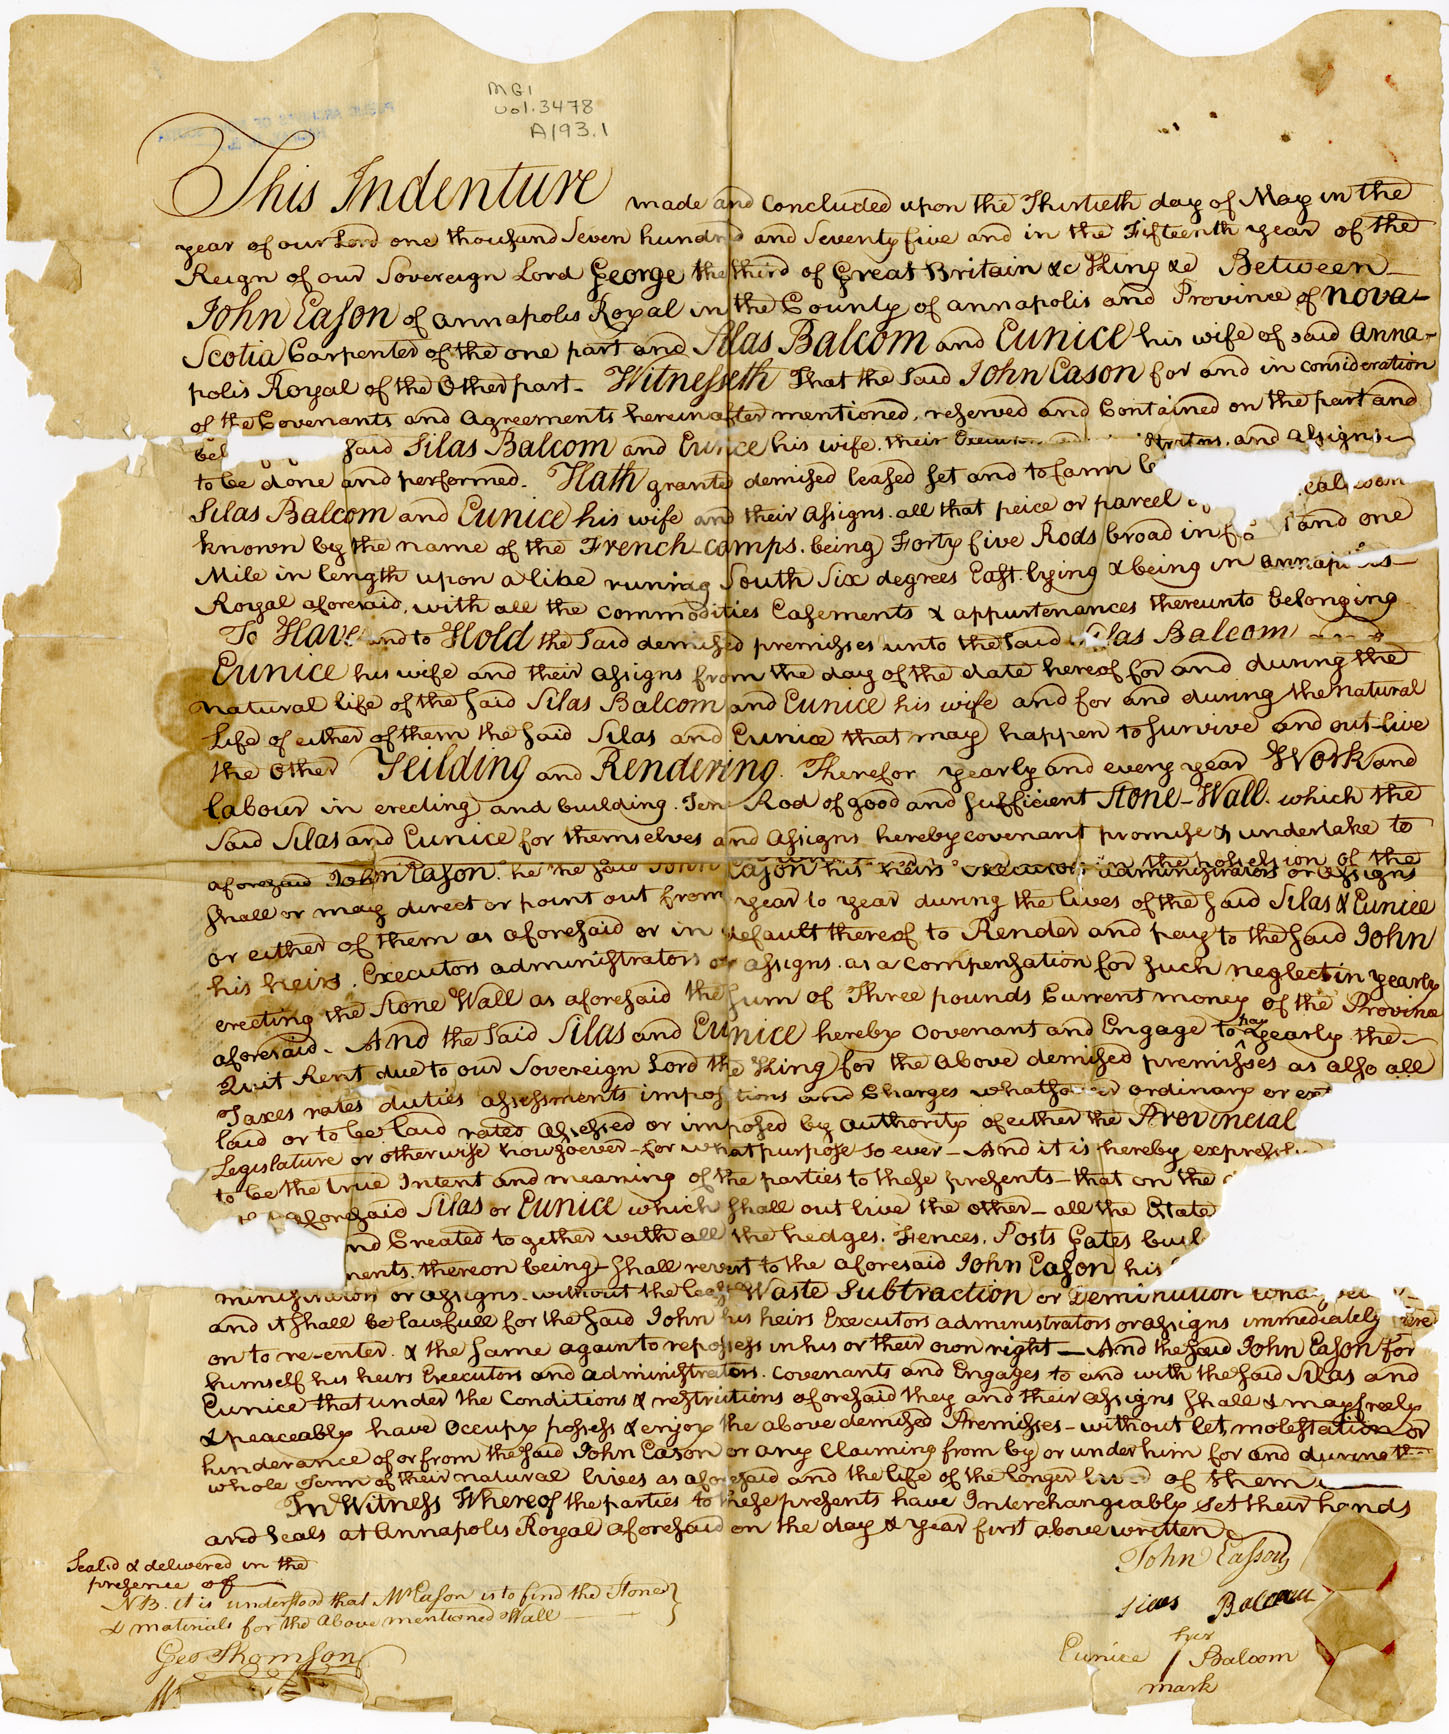 MG1
Vol. 3478
A193.1
This Indenture made and Concluded upon the Thirtieth day of May in the
year of our Lord one thousand Seven hundred and Seventy five and in the Fifteenth year of the
Reign of our Sovereign Lord George the third of Great Britain &c King &c Between
John Eason of Annapolis Royal in the County of Annapolis and Province of Nova-
Scotia Carpenter of the one part and Silas Balcom and Eunice his wife of said Anna-
polis Royal of the Other part- Witnesseth That the Said John Eason for and in consideration
of the Covenants and Agreements hereinafter mentioned, reserved and Contained on the part and
Said Silas Balcom and Eunice his wife. their and assigns
to be done and performed. Hath granted demised leased set and to farm
Silas Balcom and Eunice his wife and their Assigns. all that peice or parcel
known by the name of the French-Camps. being Forty five Rods broad in and one
Mile in length upon a line runing South Six degrees East. lying & being in annapolis-
Royal aforesaid, with all the commodities Easements & appurtenances thereunto belonging
To Have and to Hold the Said demised premisses unto the Said Silas Balcom and
Eunice his wife and their assigns from the day of the date hereof for and during the
natural life of the Said Silas Balcom and Eunice his wife and for and during the natural
Life of either of them the Said Silas and Eunice that may happen to survive and out-live
the Other Yeilding and Rendering. Therefor yearly and every year Work and
labour in erecting and building. Ten Rod of good and sufficient Stone-Wall. which the
Said Silas and Eunice for themselves and Assigns hereby covenant promise & undertake to
aforesaid John Eason. he the said John Eason his heirs executors administrators or assigns
Shall or may direct or point out from year to year during the lives of the Said Silas & Eunice
or either of them as aforesaid or in default thereof to Render and pay to the Said John
his heirs. Executors administrators or assigns. as a Compensation for such neglect in yearly
erecting the Stone Wall as aforesaid the Sum of Three pounds Current money of the Province
aforesaid. And the Said Silas and Eunice hereby Covenant and Engage to pay yearly the
Quit Rent due to our Sovereign Lord the King for the above demised premisses as also all
Taxes rates duties assessments impositions and Charges whatsoever ordinary or
laid or to be laid rated assessed or imposed by authority of either the Provincial
Legislature or otherwise howsoever-for what purpose so ever- And it is hereby
to be the true Intent and meaning of the parties to these presents- that on the
aforesaid Silas or Eunice which shall out live the other- all the Estate
and Created together with all the hedges. Fences. Posts Gates
thereon being- shall revert to the aforesaid John Eason his
or assigns. without the least Waste Subtraction or Deminution
and it shall be lawfull for the said John his heirs Executors administrators or assigns immediately there
on to re-enter. & the same again to repossess in his or their own right- And the Said John Eason for
himself his heirs Executors and administrators. Covenants and Engages to and with the Said Silas and
Eunice that under the Conditions & restrictions aforesaid they and their assigns shall & may freely
& peaceably have Occupy possess & enjoy the above demised Premisses- without let, molestation or
hinderance of or from the said John Eason or any Claiming from by or under him for and during the
whole Term of their natural lives as aforesaid and the life of the longer of them
In Witness Whereof the parties to these presents have Interchangeably set their hands
and Seals at Annapolis Royal aforesaid on the day & year first above written
John Easson
Silas Balcom
her
Eunice / Balcom
mark
Seal'd & delivered in the
presence of
NB. it is understood that Mr Eason is to find the Stone
& materials for the above mentioned Wall
Geo Thomson